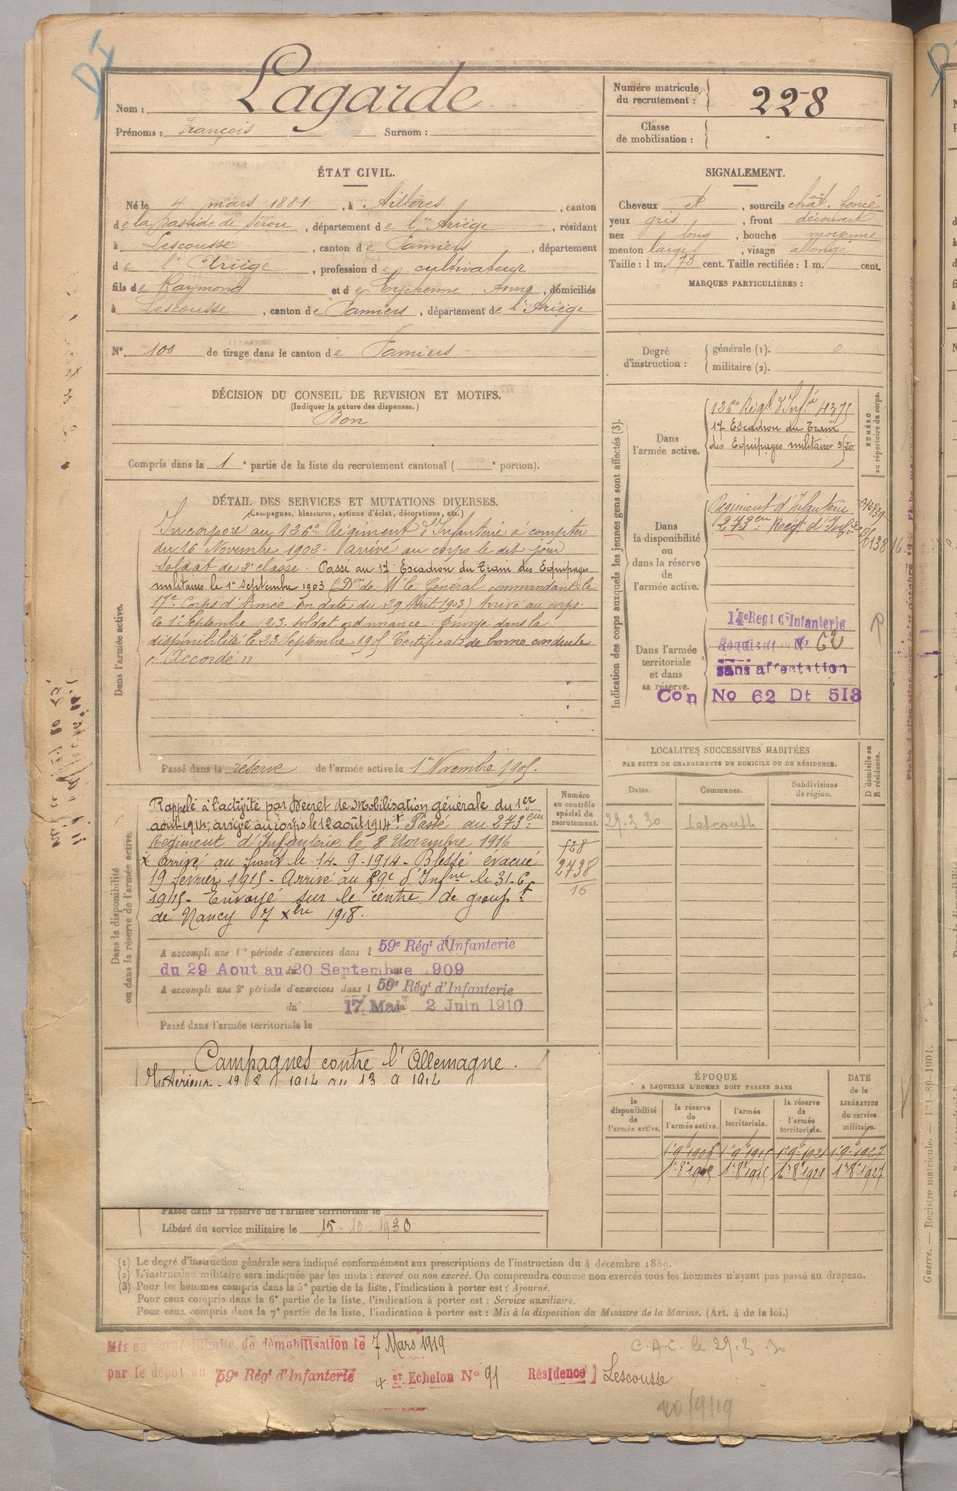 Nom : Lagarde
Prénoms : François Surnom :
Numéro matricule du recrutement : 228
Classe de mobilisation :
ÉTAT CIVIL.
Né le 4 mars 1881, à Aillères, canton
de la Bastide de Sérou, département de l'Ariège, résidant
à Lescousse, canton de Pamiers, département
de l'Ariège, profession de cultivateur
fils de Raymond et de Eychenne Anna, domiciliés
à Lescousse, canton de Pamiers, département de l'Ariège
N° 100 de tirage dans le canton de Pamiers
SIGNALEMENT.
Cheveux et, sourcils chât. foncé
yeux gris, front découvert
nez long, bouche moyenne
menton large, visage allongé
Taille : 1 m. 73 cent. Taille rectifiée : 1 m. cent.
MARQUES PARTICULIÈRES :
Degré d'instruction : générale (1). 0
militaire (2).
DÉCISION DU CONSEIL DE REVISION ET MOTIFS.
(Indiquer la nature des dispenses.)
Bon
Compris dans la 1e partie de la liste du recrutement cantonal ( e portion).
DÉTAIL DES SERVICES ET MUTATIONS DIVERSES.
(Campagnes, blessures, actions d'éclat, décorations, etc.)
Dans l'armée active.
Incorporé au 126e Régiment d'Infanterie à compter
du 16 Novembre 1902. Arrivé au corps le dit jour
soldat de 2e classe. Passé au 17e Escadron du Train des Equipages
militaires le 1er Septembre 1903 (Don de M. le Général commandant le
17e Corps d'Armée en date du 29 Août 1903) Arrivé au corps
le 1er Septembre 1903. soldat ordonnance. Envoyé dans la
disponibilité le 23 Septembre 1905 Certificat de bonne conduite
Accordé
Passé dans la réserve de l'armée active le 1er Novembre 1905.
Indication des corps auxquels les jeunes gens sont affectés (3).
NUMÉRO au répertoire du corps.
Dans l'armée active.
126e Régt d'Infie
17 Escadron du Train
des Equipages militaires
Dans la disponibilité ou dans la réserve de l'armée active.
Régiment d'Infanterie
273em Regt d'Infie
Dans l'armée territoriale et dans sa réserve.
14e Regt d'Infanterie
N° 62
sans affectation
Con No 62 Dt 513
LOCALITÉS SUCCESSIVES HABITÉES
PAR SUITE DE CHANGEMENTS DE DOMICILE OU DE RÉSIDENCE.
Dates. Communes. Subdivisions de région. D domicile ou R résidence.
29.3.30 Lescousse
Dans la disponibilité ou dans la réserve de l'armée active.
Numéro au contrôle spécial du recrutement.
Rappelé à l'activité par Décret de Mobilisation générale du 1er
août 1914, arrivé au corps le 12 août 1914. Passé au 273em
Régiment d'Infanterie le 8 Novembre 1916
Arrivé au front le 14-9-1914 - Blessé évacué
19 février 1915 - Arrivé au 59e d'Infie le 31-6
1915 - Envoyé sur le centre de groupt
de Nancy 7 Xbre 1918.
138
2738
16
A accompli une 1re période d'exercices dans l 59e Régt d'Infanterie
du 29 Aout au 20 Septembre 1909
A accompli une 2e période d'exercices dans l 59e Régt d'Infanterie
du 17 Mai 2 Juin 1910
Passé dans l'armée territoriale le
Campagnes contre l'Allemagne.
Intérieur - 12 8 1914 au 13 9 1914
ÉPOQUE
A LAQUELLE L'HOMME DOIT PASSER DANS
la disponibilité de l'armée active.
la réserve de l'armée active.
l'armée territoriale.
la réserve de l'armée territoriale.
DATE de la LIBÉRATION du service militaire.
1.8.1921 1.8.1927
Passé dans la réserve de l'armée territoriale le
Libéré du service militaire le 15-10-1930
(1) Le degré d'instruction générale sera indiqué conformément aux prescriptions de l'instruction du 4 décembre 1889.
(2) L'instruction militaire sera indiquée par les mots : exercé ou non exercé. On comprendra comme non exercés tous les hommes n'ayant pas passé au drapeau.
(3) Pour les hommes compris dans la 5e partie de la liste, l'indication à porter est : Ajourné.
Pour ceux compris dans la 6e partie de la liste, l'indication à porter est : Service auxiliaire.
Pour ceux compris dans la 7e partie de la liste, l'indication à porter est : Mis à la disposition du Ministre de la Marine. (Art. 4 de la loi.)
Mis en congé illimité de démobilisation le 7 Mars 1919
par le dépôt du 59e Régt d'Infanterie 4 Echelon No 91 Résidence ] Lescousse
C.A.C. le 29.3.30
20/9/19
Guerre. — Registre matricule. — 131-89-1901.